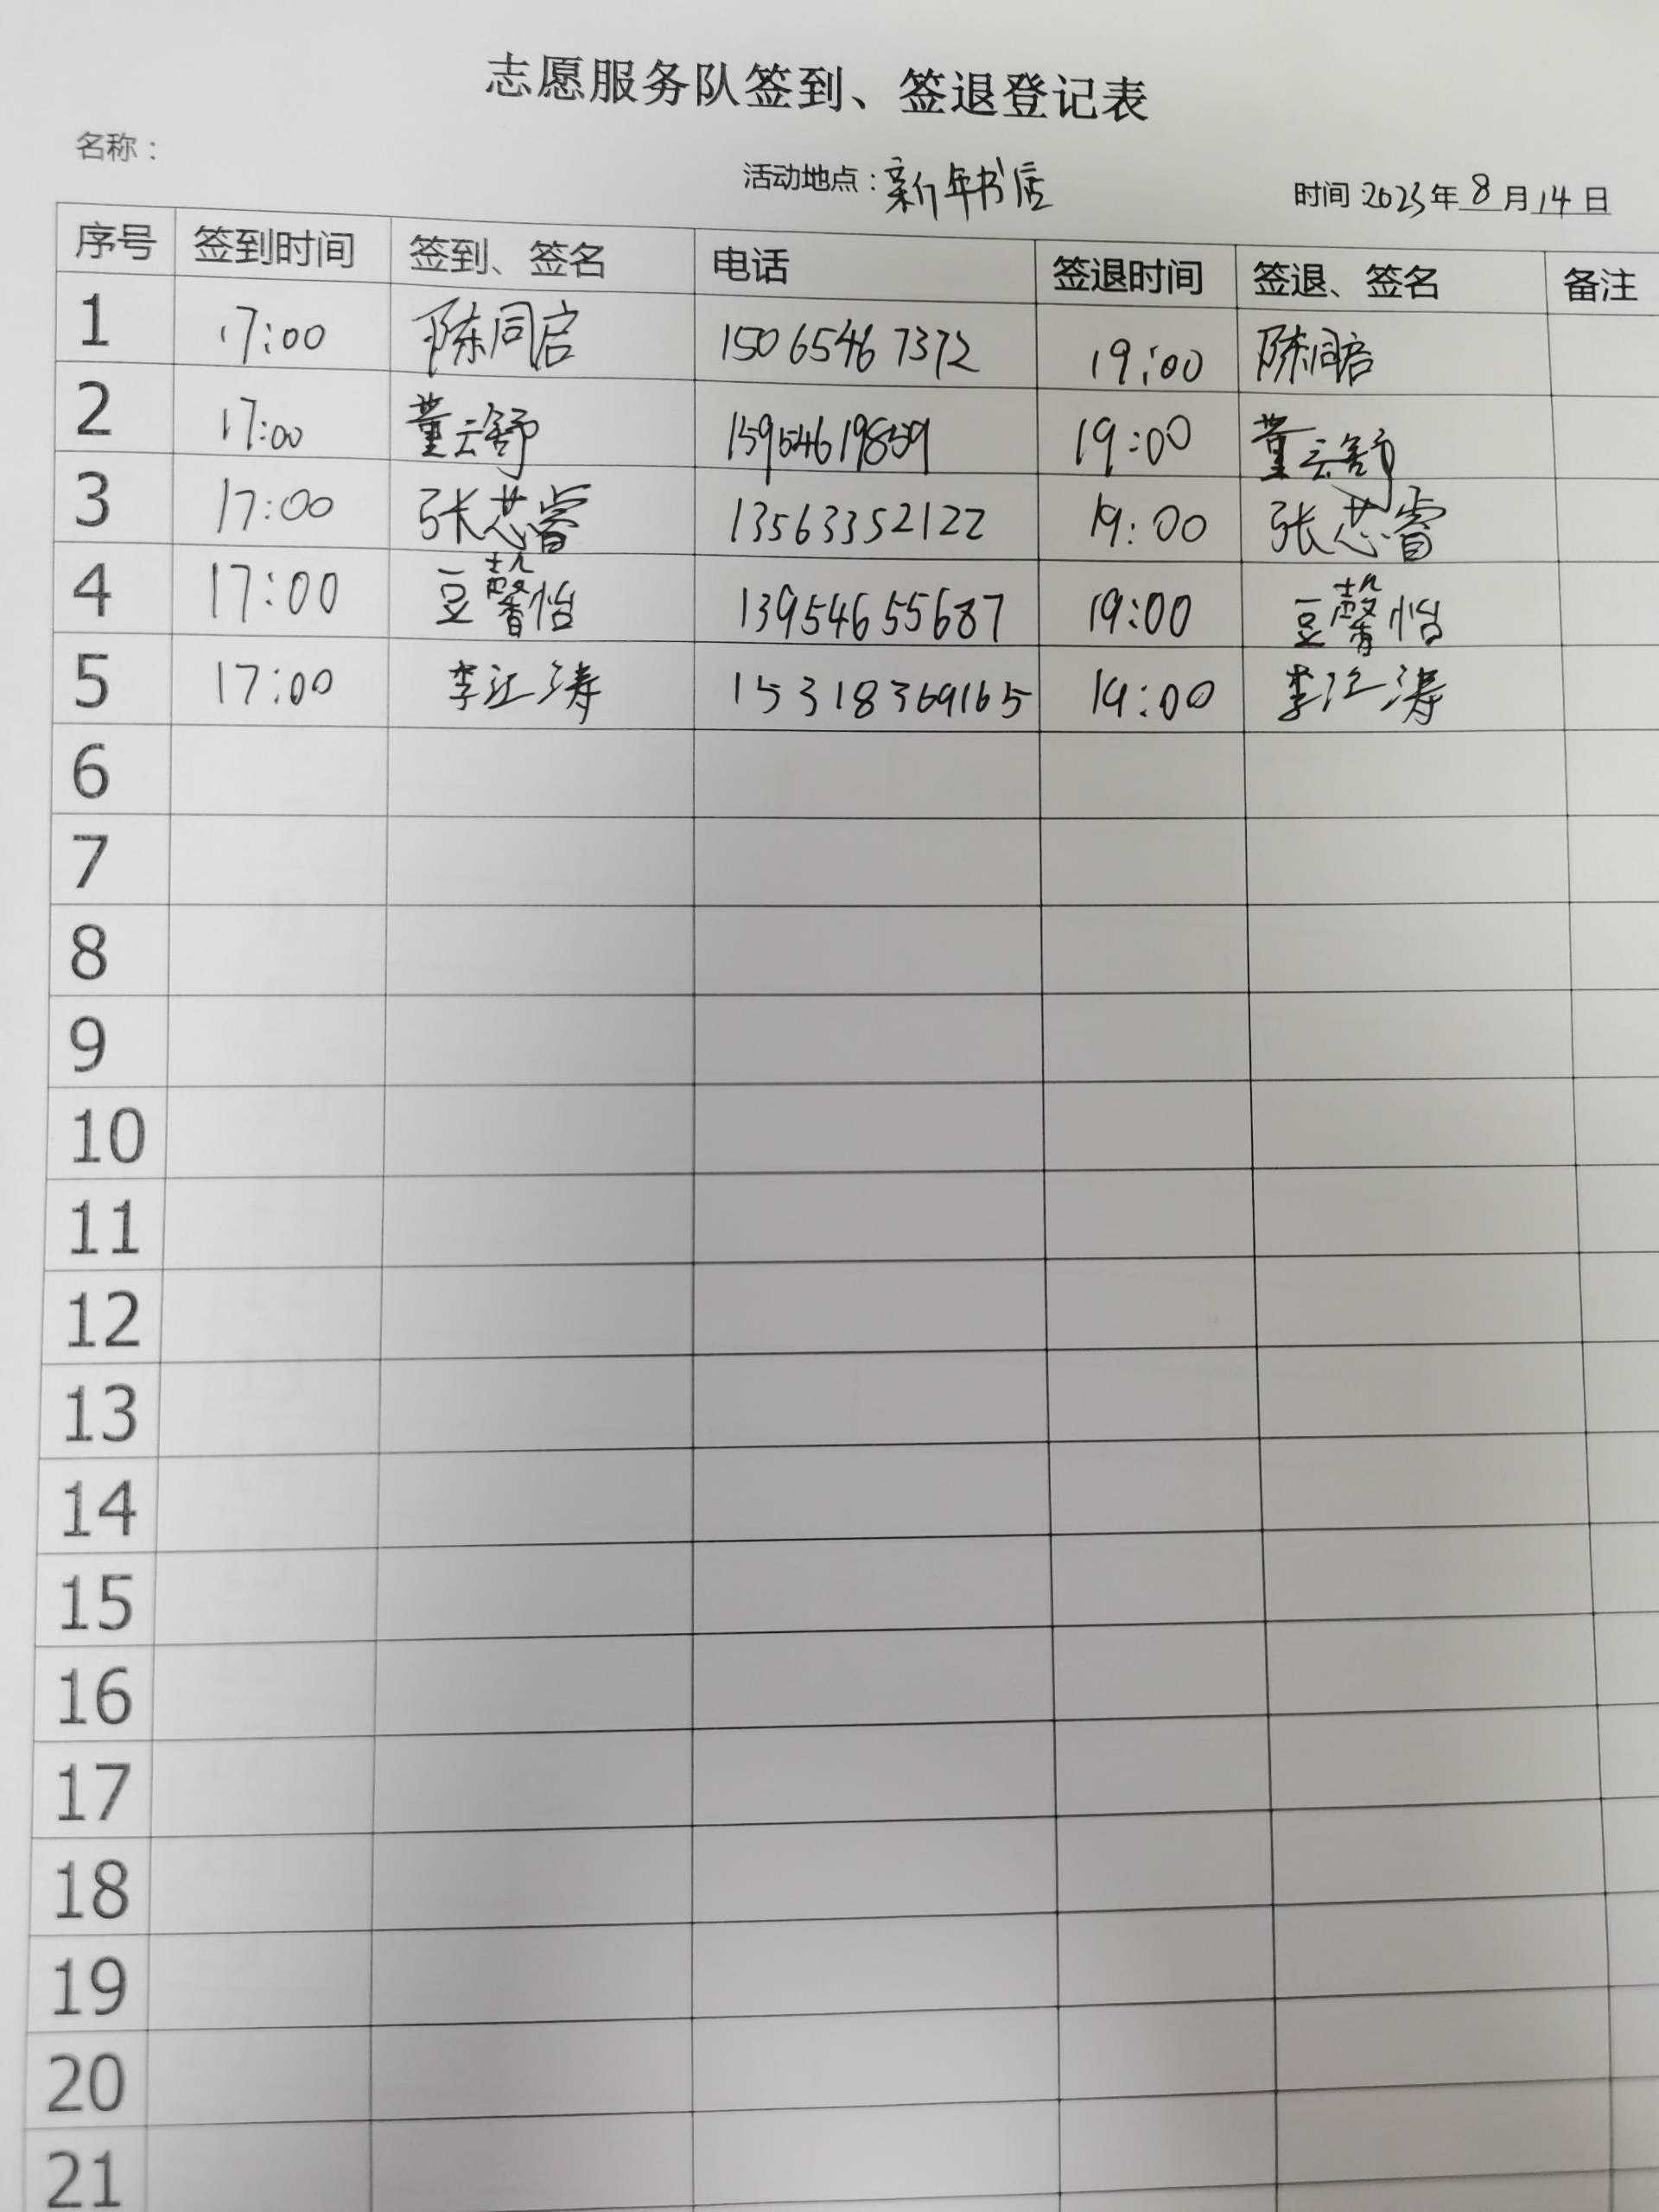 志愿服务队签到、签退登记表
名称： 活动地点：新年书店 时间 2023年 8 月 14 日
序号 签到时间 签到、签名 电话 签退时间 签退、签名 备注
1 17:00 陈同启 15065467372 19:00 陈同启
2 17:00 董云舒 15954619859 19:00 董云舒
3 17:00 张芯睿 13563352122 19:00 张芯睿
4 17:00 豆馨怡 13954655687 19:00 豆馨怡
5 17:00 李江涛 15318369165 19:00 李江涛
6
7
8
9
10
11
12
13
14
15
16
17
18
19
20
21